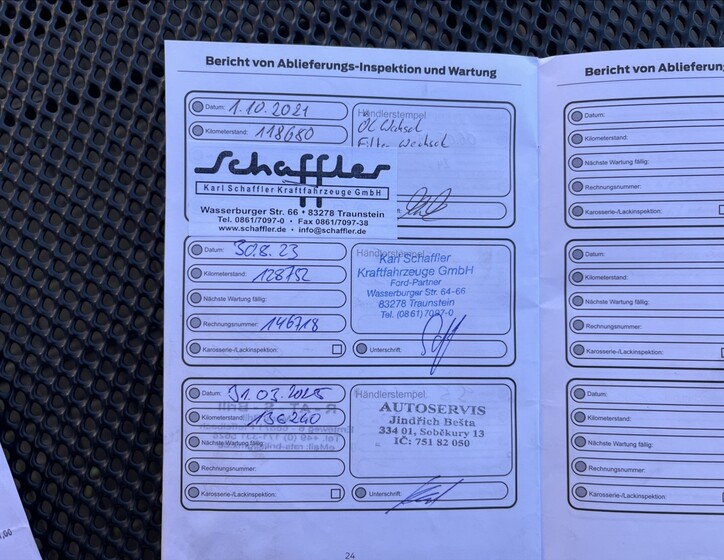 Bericht von Ablieferungs-Inspektion und Wartung
Datum: 1.10.2021
Kilometerstand: 118680
Händlerstempel
Öl Wechsel
Filter Wechsel
Schaffler
Karl Schaffler Kraftfahrzeuge GmbH
Wasserburger Str. 66 • 83278 Traunstein
Tel. 0861/7097-0 • Fax 0861/7097-38
www.schaffler.de • info@schaffler.de
Datum: 30.8.23
Kilometerstand: 128752
Nächste Wartung fällig:
Rechnungsnummer: 146718
Karosserie-/Lackinspektion:
Händlerstempel
Karl Schaffler
Kraftfahrzeuge GmbH
Ford-Partner
Wasserburger Str. 64-66
83278 Traunstein
Tel. (0861) 7097-0
Unterschrift:
Datum: 31.03.2025
Kilometerstand: 136240
Nächste Wartung fällig:
Rechnungsnummer:
Karosserie-/Lackinspektion:
Händlerstempel
AUTOSERVIS
Jindřich Bešta
334 01, Soběkury 13
IČ: 751 82 050
Unterschrift:
24
Bericht von Ablieferung
Datum:
Kilometerstand:
Nächste Wartung fällig:
Rechnungsnummer:
Karosserie-/Lackinspektion:
Datum:
Kilometerstand:
Nächste Wartung fällig:
Rechnungsnummer:
Karosserie-/Lackinspektion:
Datum:
Kilometerstand:
Nächste Wartung fällig:
Rechnungsnummer:
Karosserie-/Lackinspektion: